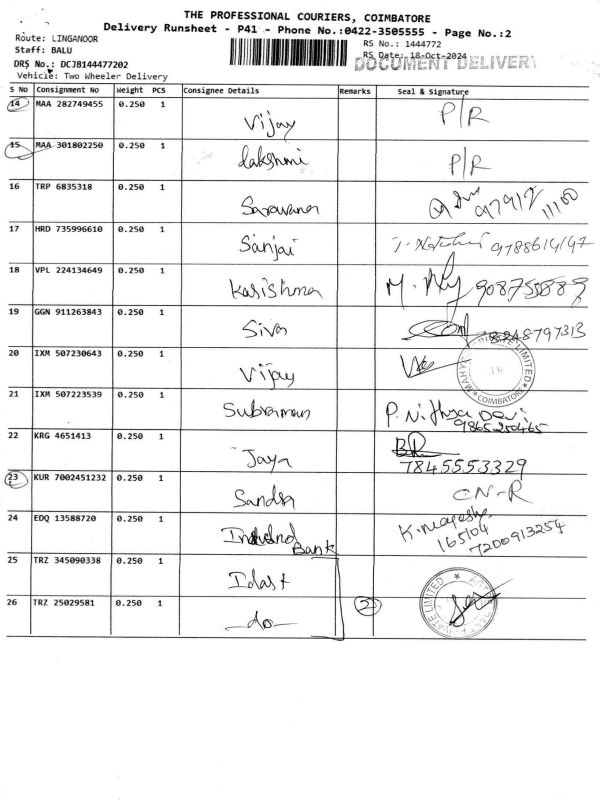 THE PROFESSIONAL COURIERS, COIMBATORE
Delivery Runsheet - P41 - Phone No.:0422-3505555 - Page No.:2
Route: LINGANOOR
Staff: BALU
DRS No.: DCJB144477202
Vehicle: Two Wheeler Delivery
RS No.: 1444772
RS Date: 18-Oct-2024
DOCUMENT DELIVERY
S No Consignment No Weight PCS Consignee Details Remarks Seal & Signature
14 MAA 282749455 0.250 1 Vijay P/R
15 MAA 301802250 0.250 1 lakshmi P/R
16 TRP 6835318 0.250 1 Saravanan 11100
17 HRD 735996610 0.250 1 Sanjai
18 VPL 224134649 0.250 1 Karishma M.
19 GGN 911263843 0.250 1 Siva 8248797313
20 IXM 507230643 0.250 1 Vijay
PRIVATE LIMITED COIMBATORE
21 IXM 507223539 0.250 1 P. Nithya Devi
22 KRG 4651413 0.250 1 Jaya
7845553329
23 KUR 7002451232 0.250 1 CN-R
24 EDQ 13588720 0.250 1 Bank K.
165104
7200913254
25 TRZ 345090338 0.250 1
26 TRZ 25029581 0.250 1 -do- 2
PRIVATE LIMITED